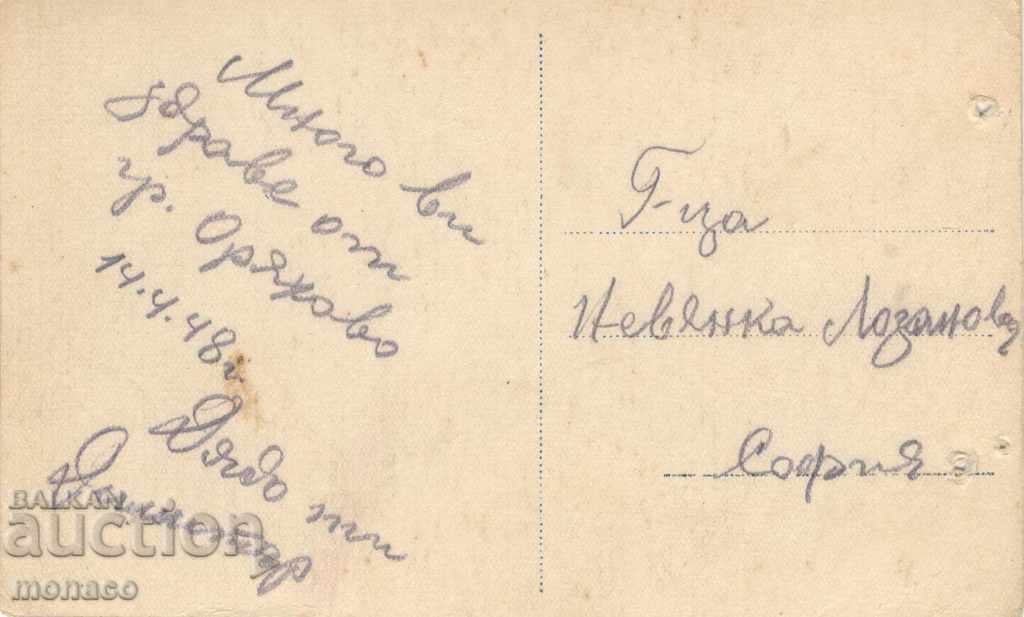 Много ви
здраве от
гр. Оряхово
14.4.48 г.
Дядо ти
Димитър
Г-ца
Невянка Лозанова
София
BALKAN
auction
monaco